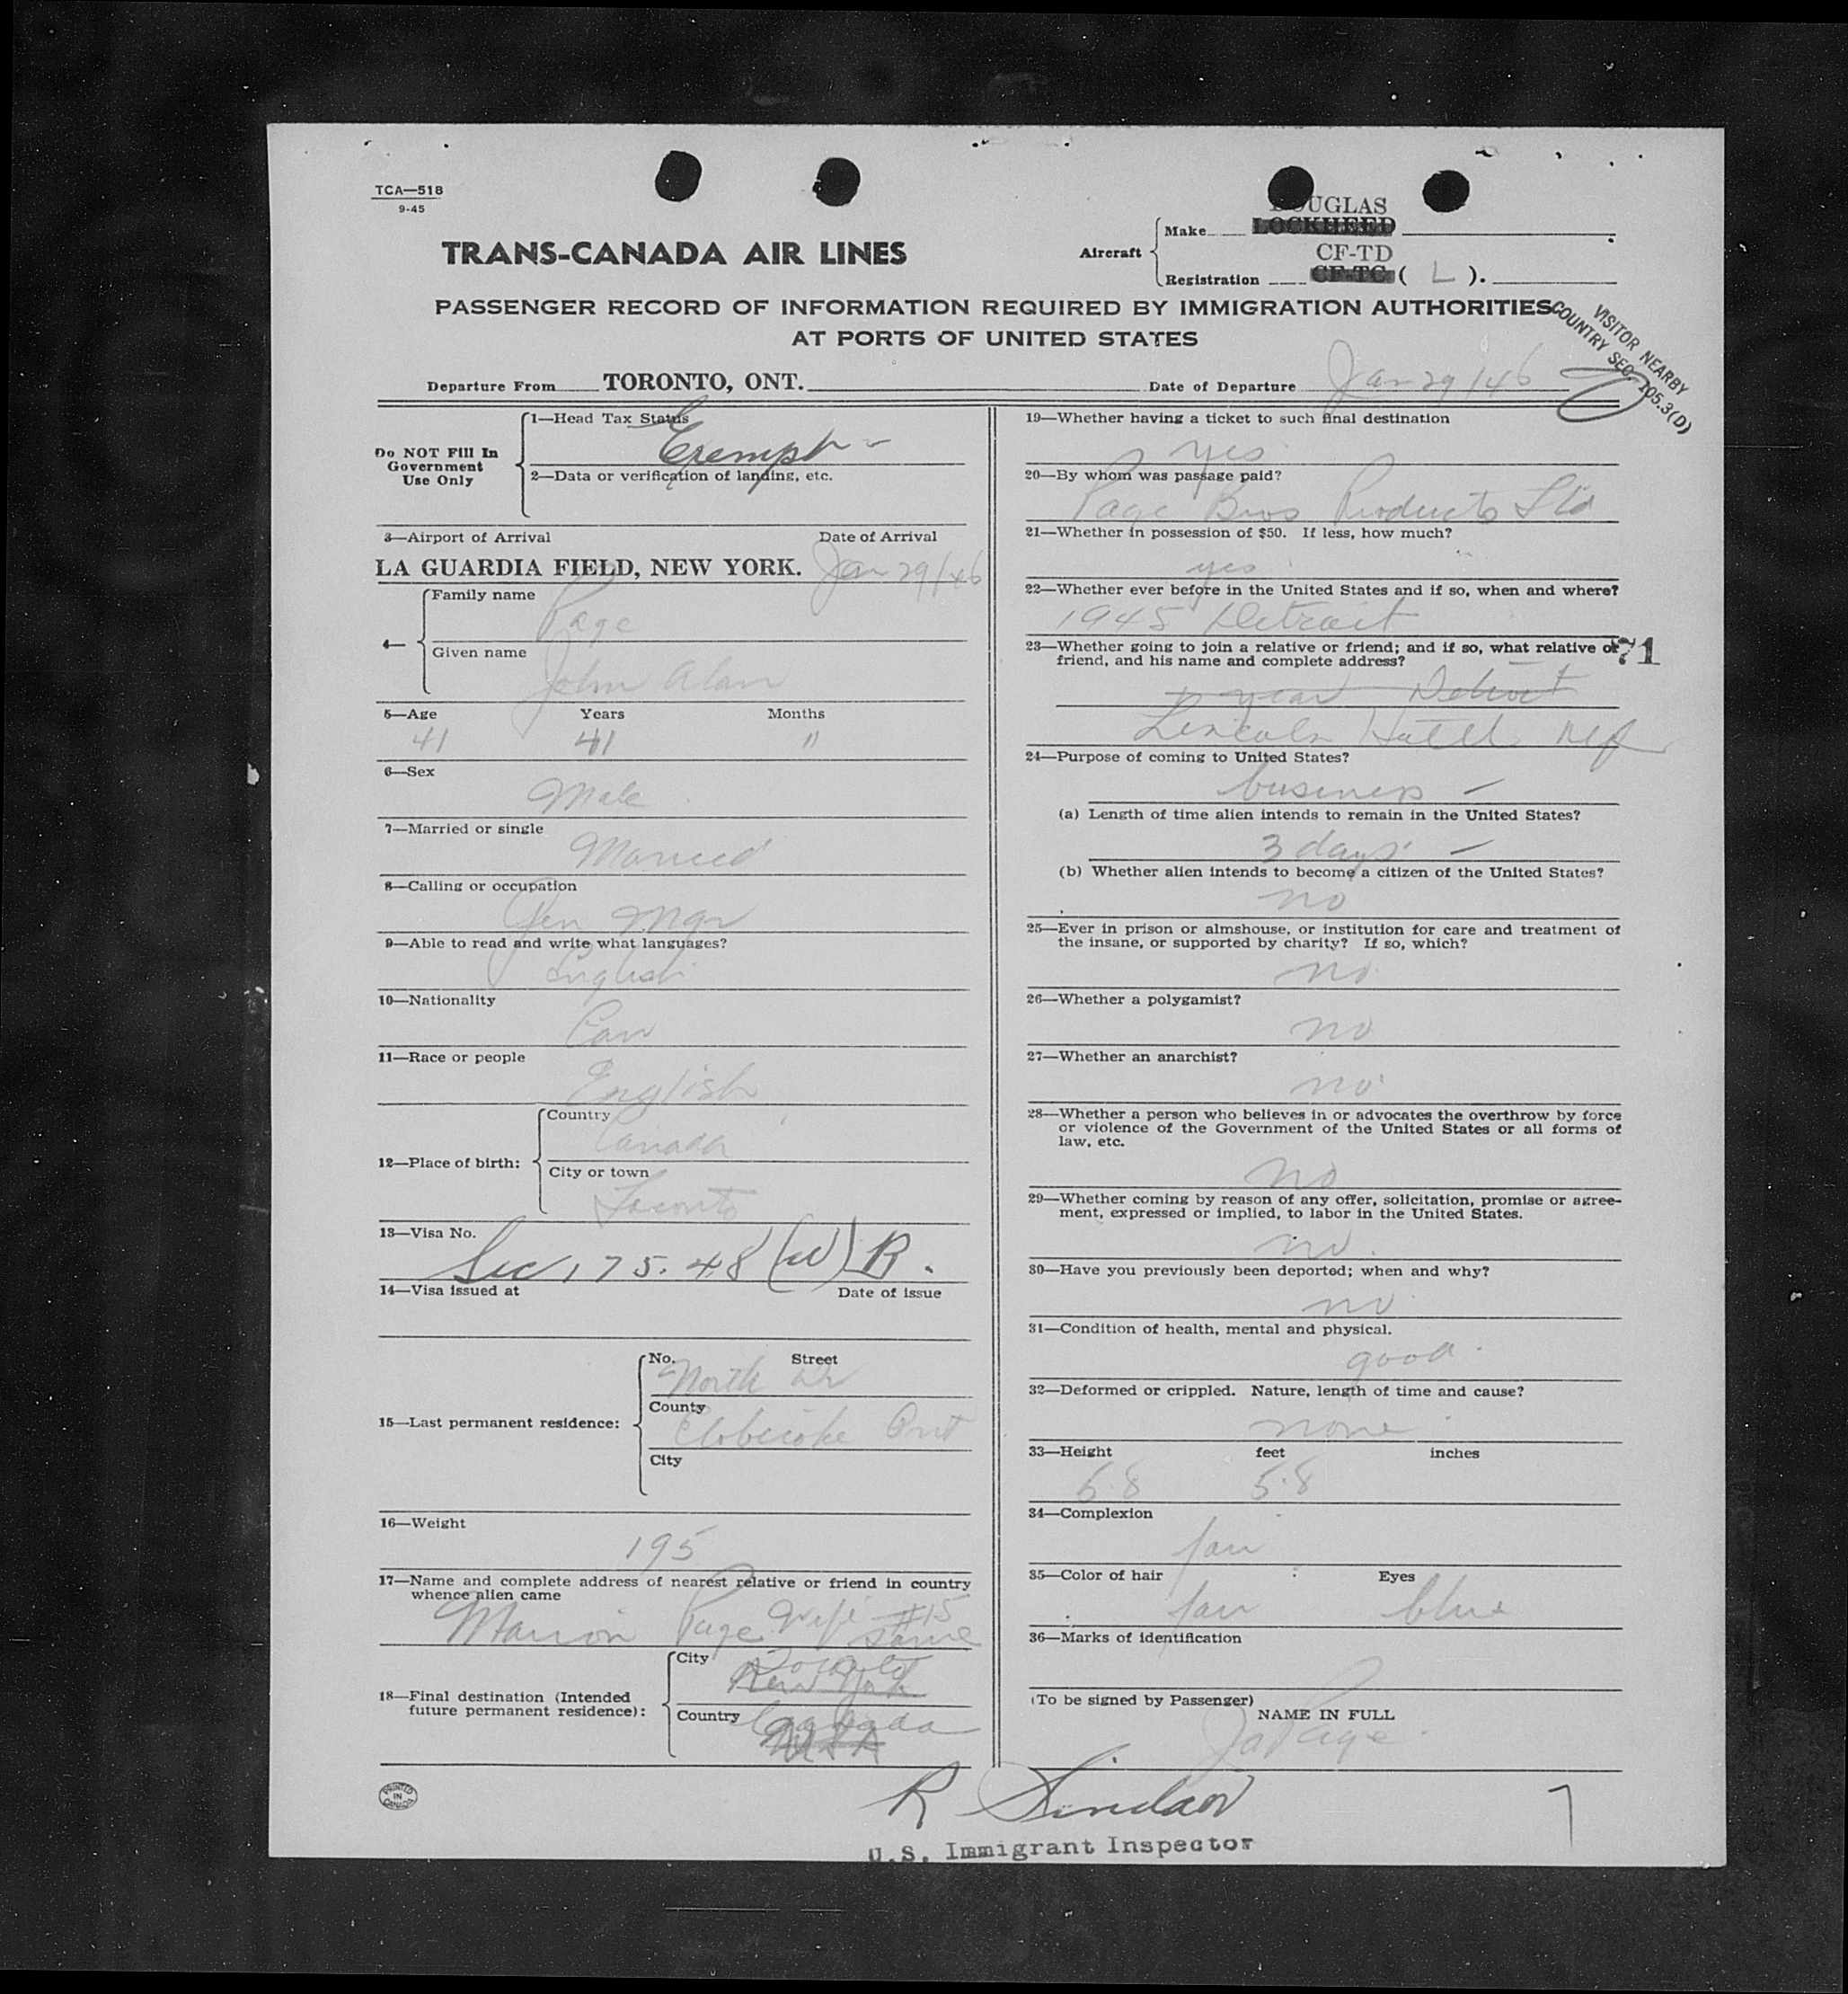 TCA—518
9-45
TRANS-CANADA AIR LINES
Aircraft
Make DOUGLAS
LOCKHEED
CF-TD
Registration CF-TC ( L ).
PASSENGER RECORD OF INFORMATION REQUIRED BY IMMIGRATION AUTHORITIES
AT PORTS OF UNITED STATES
VISITOR NEARBY
COUNTRY SEC. 105.3(D)
Departure From TORONTO, ONT. Date of Departure Jan 29/46
Do NOT Fill In
Government
Use Only
1—Head Tax Status
Exempt
2—Data or verification of landing, etc.
3—Airport of Arrival Date of Arrival
LA GUARDIA FIELD, NEW YORK. Jan 29/46
4—
Family name
Page
Given name
John Alan
5—Age Years Months
41 41 "
6—Sex
Male
7—Married or single
Married
8—Calling or occupation
Gen Mgr
9—Able to read and write what languages?
English
10—Nationality
Can
11—Race or people
English
12—Place of birth:
Country
Canada
City or town
Toronto
13—Visa No.
Sec 175.48 (W) B.
14—Visa issued at Date of issue
15—Last permanent residence:
No. Street
North Dr
County
Etobicoke Ont
City
16—Weight
195
17—Name and complete address of nearest relative or friend in country
whence alien came
Marion Page Wife #15
same
18—Final destination (Intended
future permanent residence):
City Toronto
New York
Country Canada
USA
PRINTED
IN
CANADA
19—Whether having a ticket to such final destination
yes
20—By whom was passage paid?
Page Bros Products Ltd
21—Whether in possession of $50. If less, how much?
yes
22—Whether ever before in the United States and if so, when and where?
1945 Detroit
23—Whether going to join a relative or friend; and if so, what relative or
friend, and his name and complete address?
71
year Detroit
Lincoln Hotel
24—Purpose of coming to United States?
business —
(a) Length of time alien intends to remain in the United States?
3 days —
(b) Whether alien intends to become a citizen of the United States?
no
25—Ever in prison or almshouse, or institution for care and treatment of
the insane, or supported by charity? If so, which?
no
26—Whether a polygamist?
no
27—Whether an anarchist?
no
28—Whether a person who believes in or advocates the overthrow by force
or violence of the Government of the United States or all forms of
law, etc.
no
29—Whether coming by reason of any offer, solicitation, promise or agree-
ment, expressed or implied, to labor in the United States.
no
30—Have you previously been deported; when and why?
no
31—Condition of health, mental and physical.
good
32—Deformed or crippled. Nature, length of time and cause?
none
33—Height feet inches
5.8
34—Complexion
fair
35—Color of hair Eyes
fair blue
36—Marks of identification
(To be signed by Passenger)
NAME IN FULL
JaPage
R Sinclair
U.S. Immigrant Inspector
7